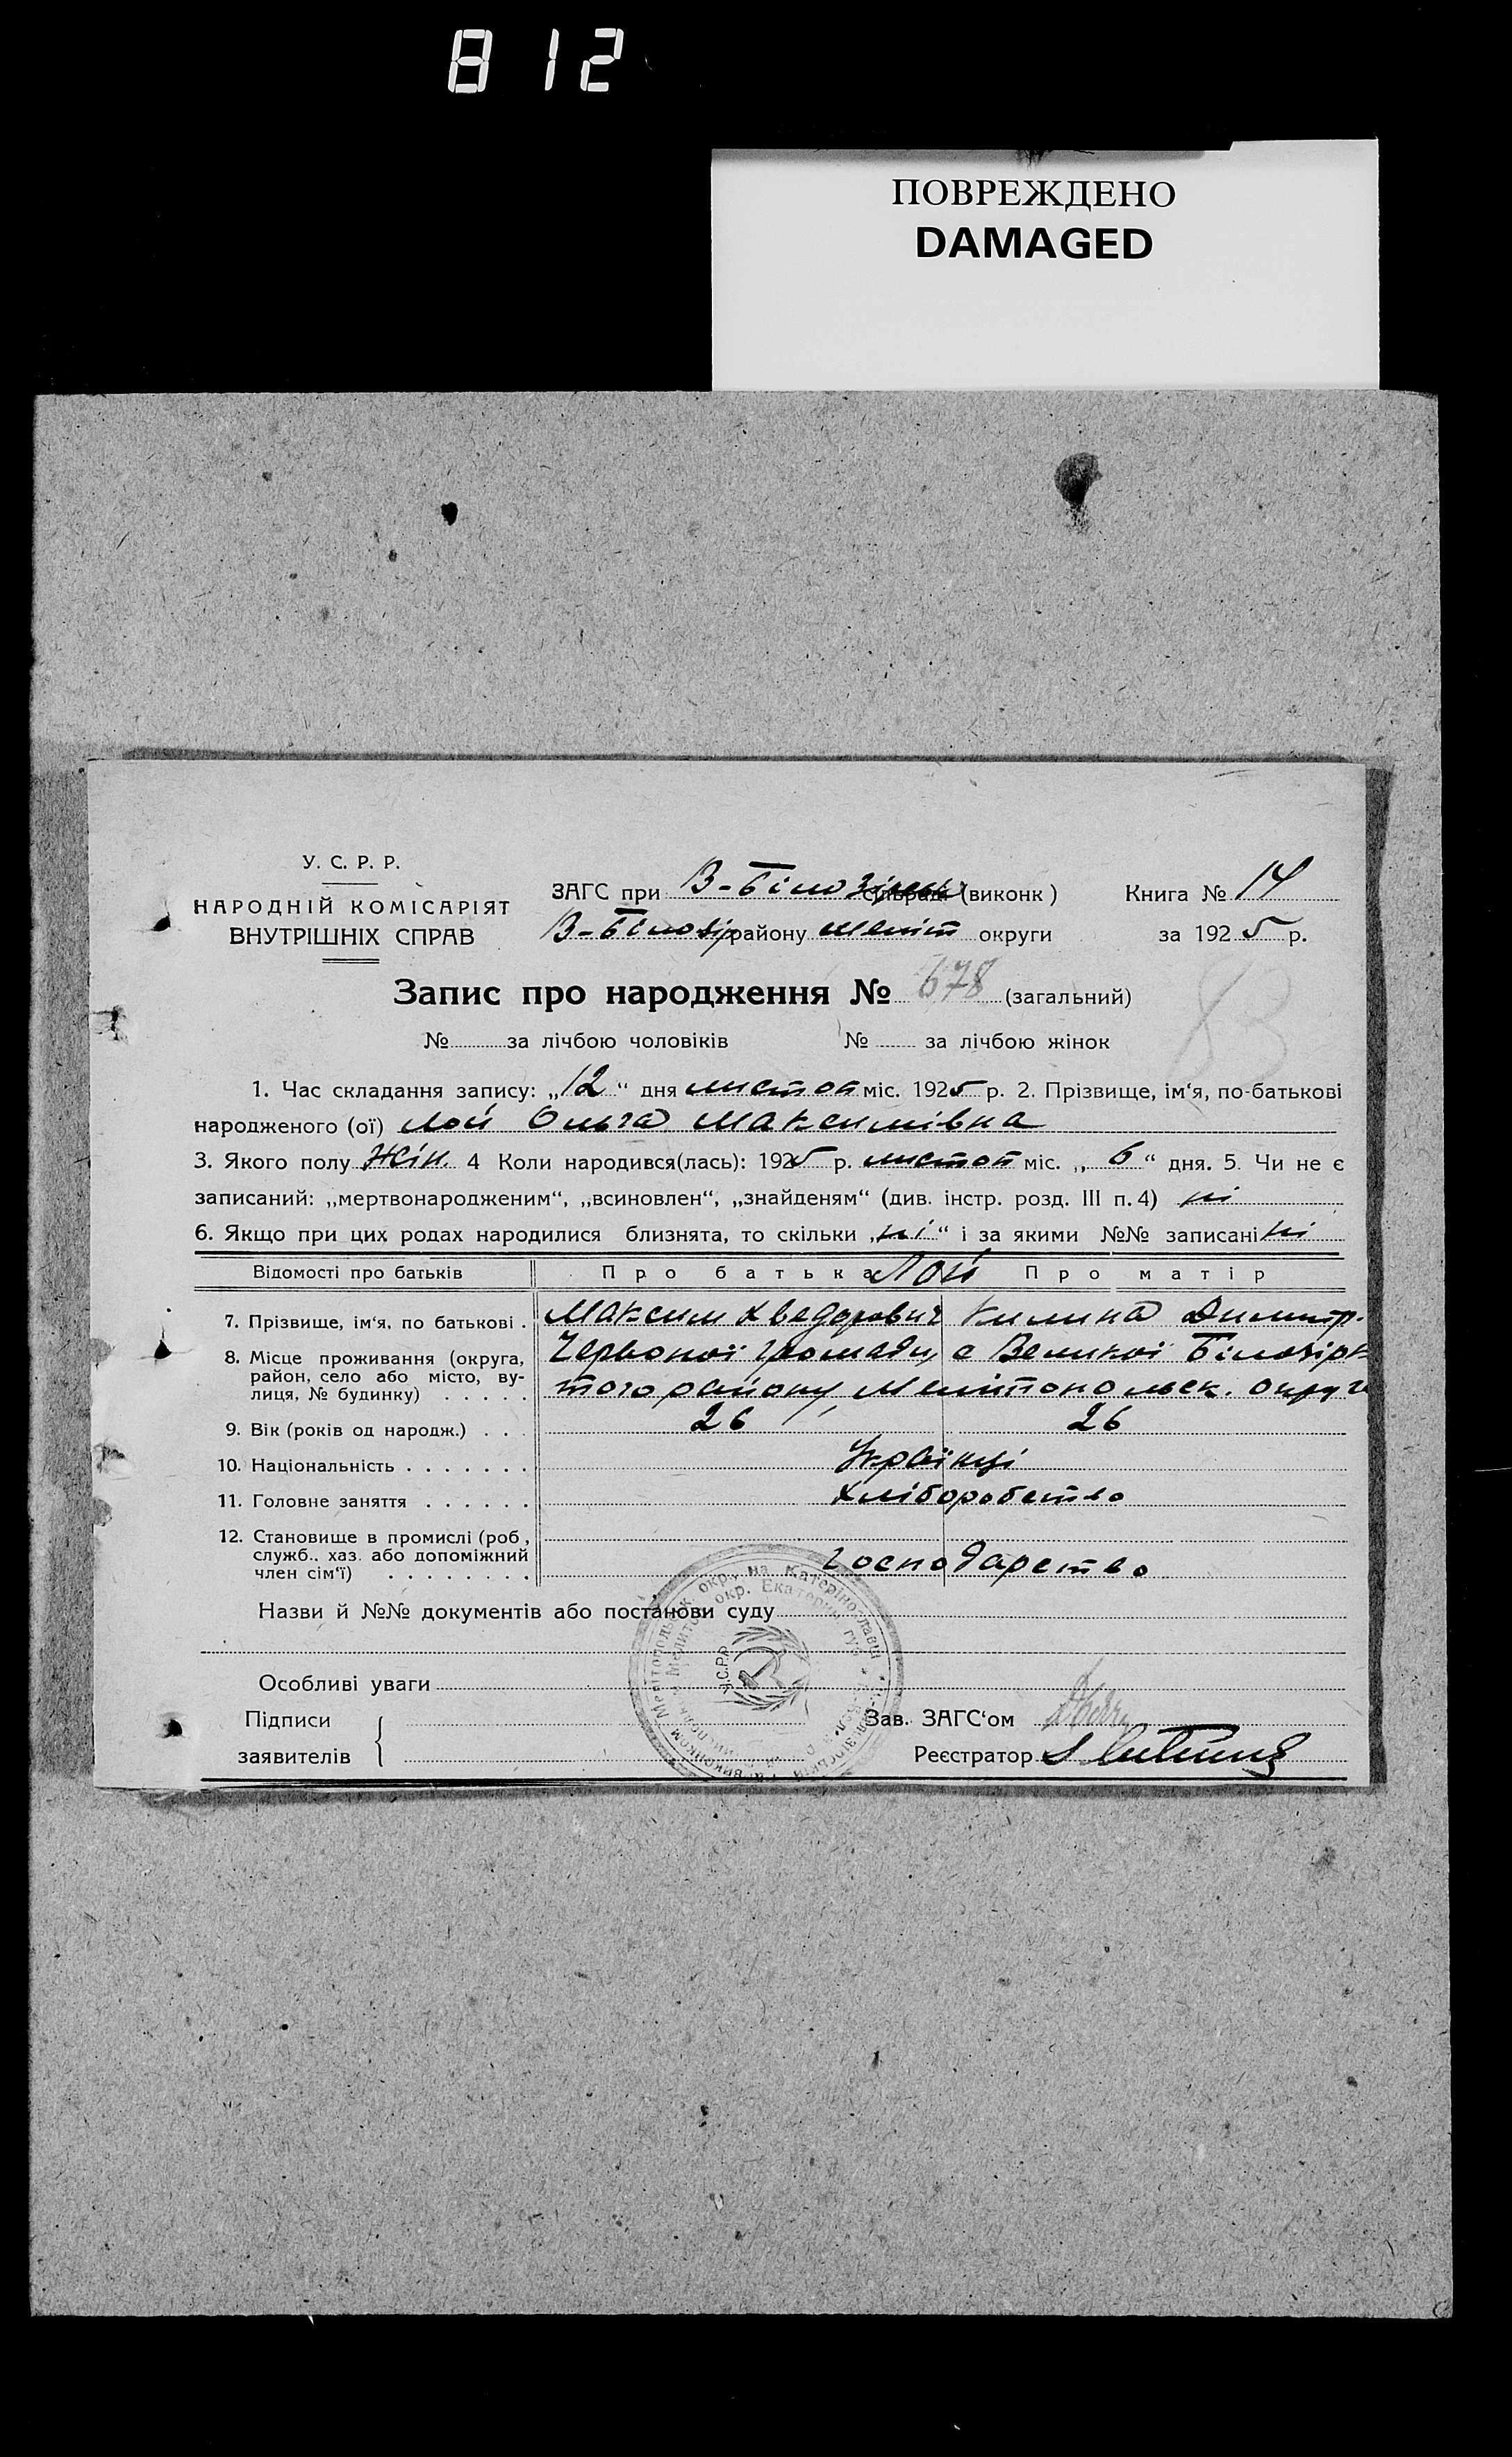 812
ПОВРЕЖДЕНО
DAMAGED
У. С. Р. Р.
НАРОДНІЙ КОМІСАРІЯТ
ВНУТРІШНІХ СПРАВ
ЗАГС при В-Білозірськ (виконк) Книга № 14
В-Білозір району Меліт округи за 1925 р.
Запис про народження № 678 (загальний)
83
№ за лічбою чоловіків № за лічбою жінок
1. Час складання запису: „12“ дня листоп міс. 1925 р. 2. Прізвище, ім‘я, по-батькові
народженого (ої) Лой Ольга Максимівна
3. Якого полу Жін. 4 Коли народився(лась): 1925 р. листоп міс. „6“ дня. 5. Чи не є
записаний: „мертвонародженим“, „всиновлен“, „знайденям“ (див. інстр. розд. III п. 4) ні
6. Якщо при цих родах народилися близнята, то скільки „ні“ і за якими №№ записані ні
Відомості про батьків Про батька Лой Про матір
7. Прізвище, ім‘я, по батькові . Максим Хведорович Килина Димитр.
8. Місце проживання (округа, район, село або місто, вулиця, № будинку) . . . . . Червоної Громади, с Великої Білозірк
того району, Мелітопольск. округи
9. Вік (років од народж.) . . . 26 26
10. Національність . . . . . . . Українці
11. Головне заняття . . . . . . Хліборобство
12. Становище в промислі (роб, служб.. хаз. або допоміжний член сім‘ї) . . . . . . . . Господарство
Назви й №№ документів або постанови суду
Особливі уваги
Підписи
заявителів
Зав. ЗАГС‘ом
Реєстратор
У.С.Р.Р.